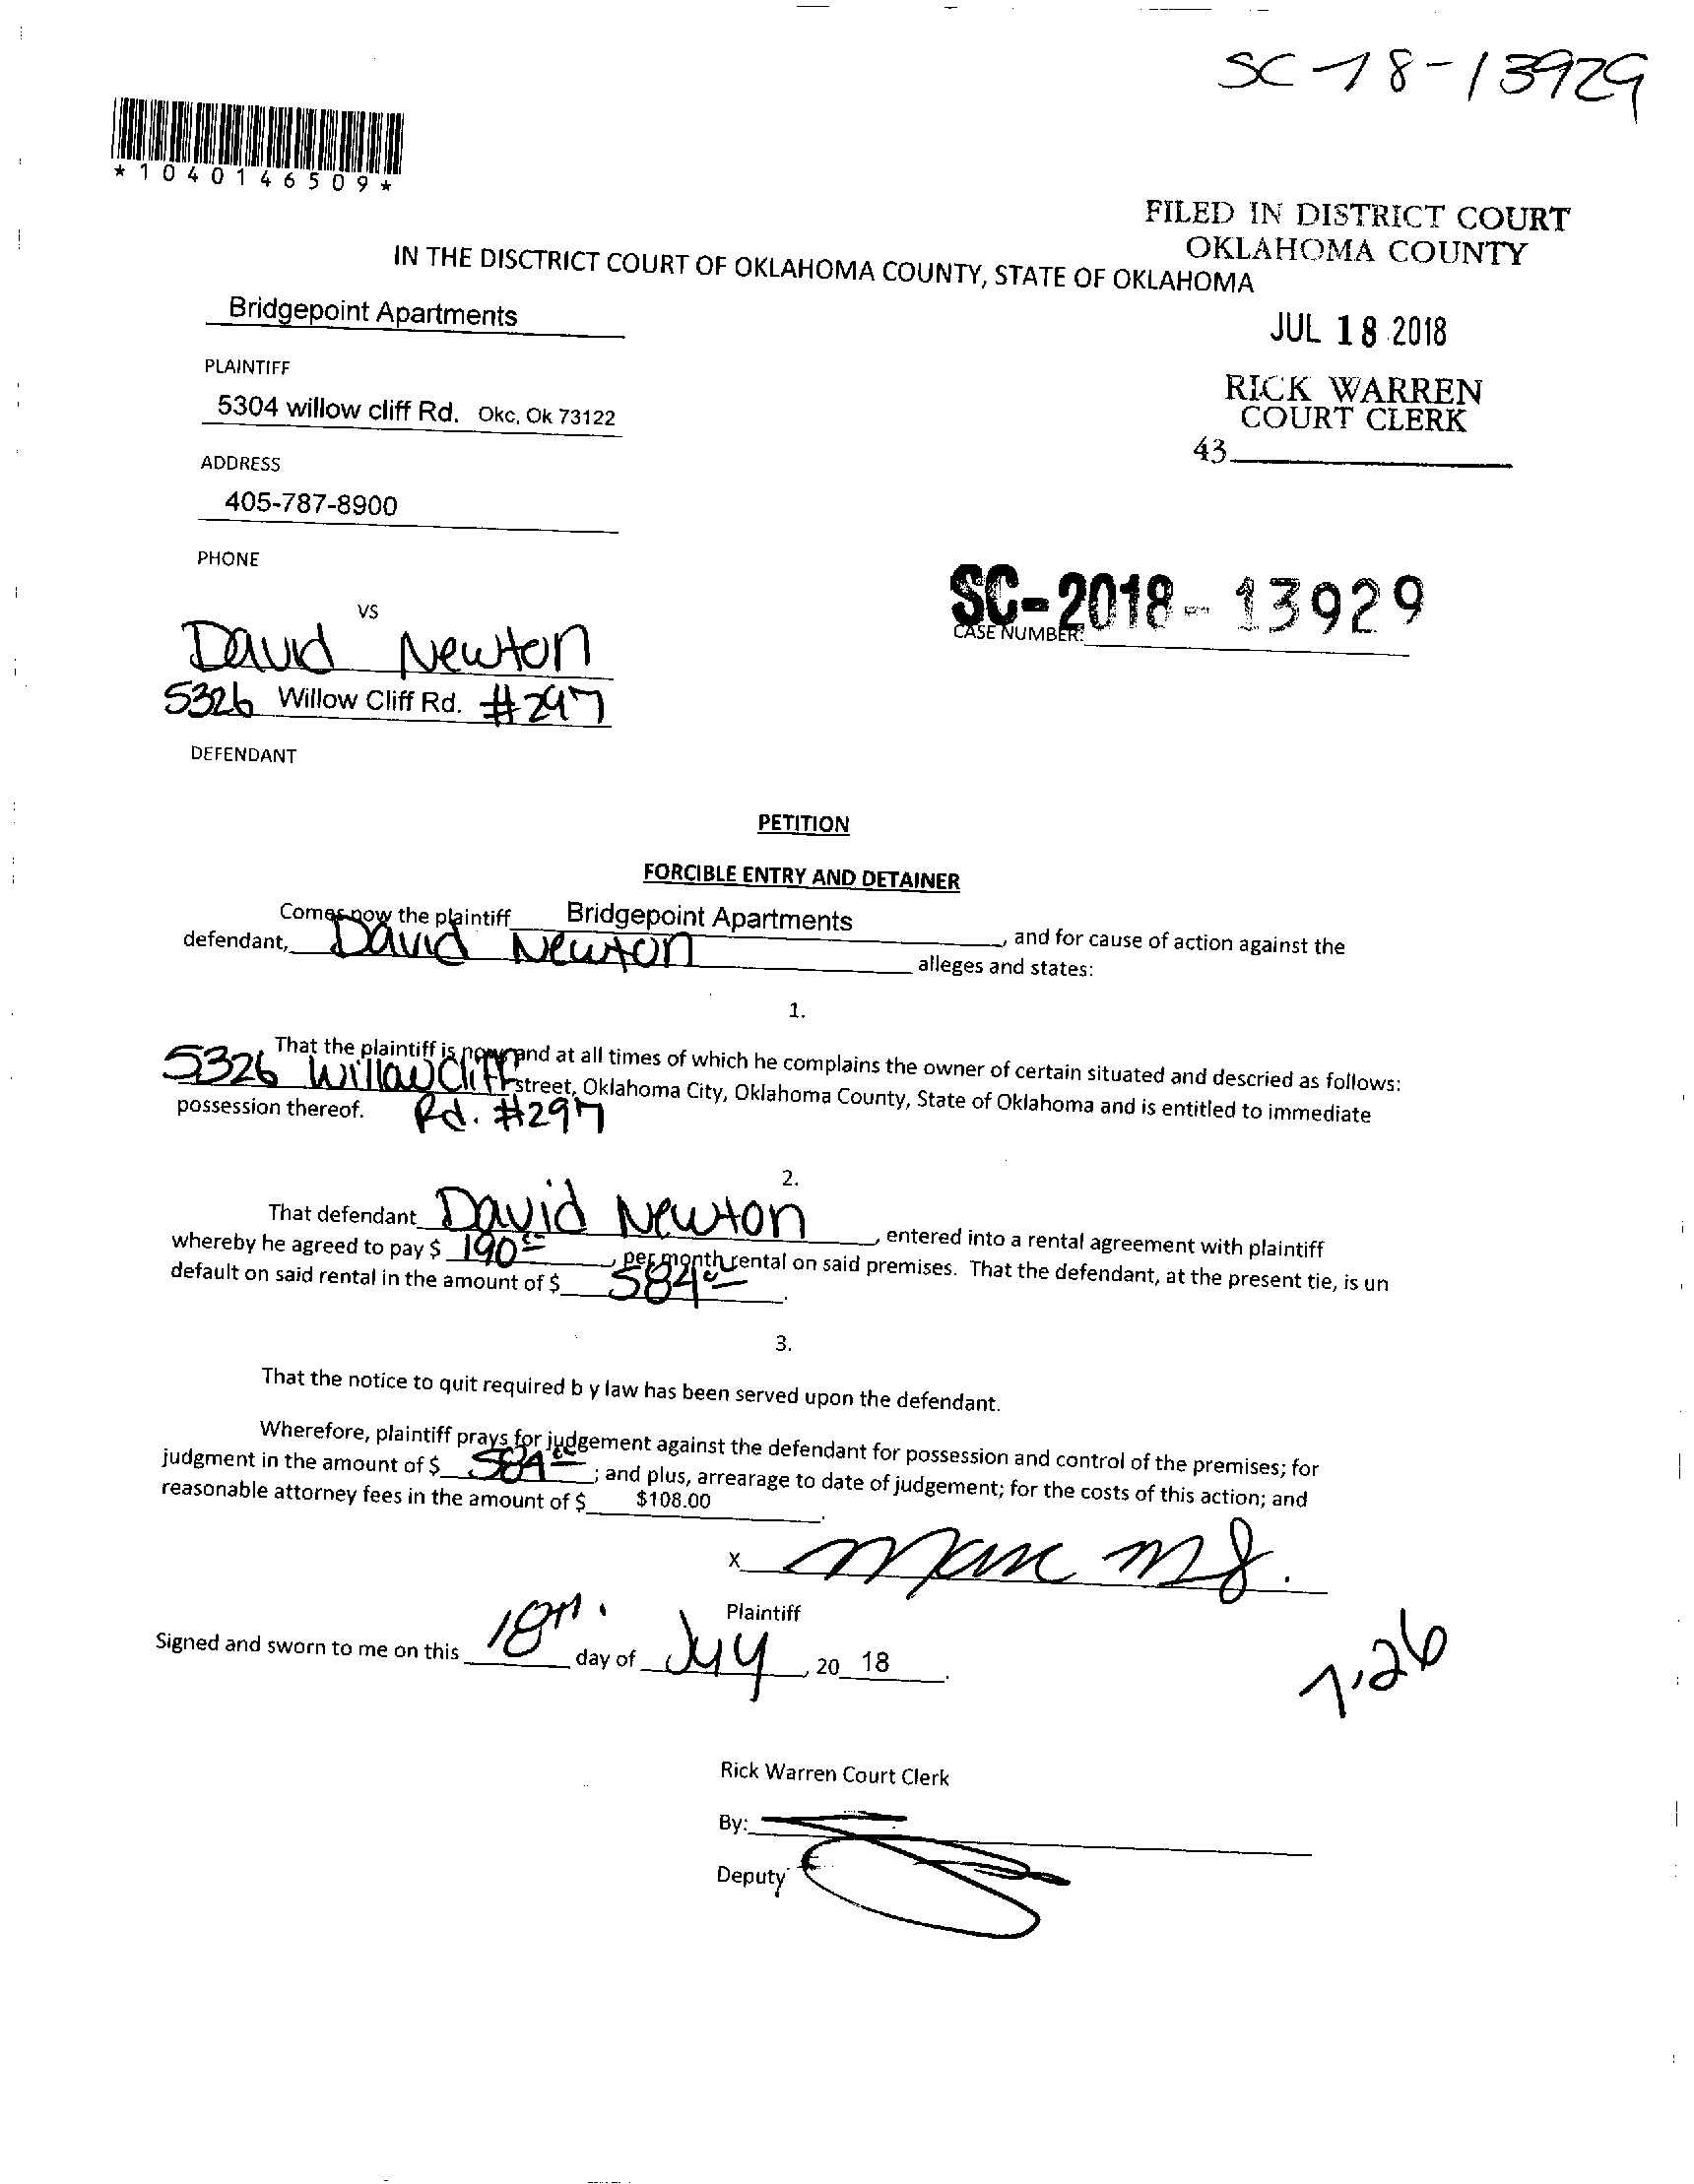 SC-18-13929
*1040146509*
FILED IN DISTRICT COURT
OKLAHOMA COUNTY
IN THE DISCTRICT COURT OF OKLAHOMA COUNTY, STATE OF OKLAHOMA
Bridgepoint Apartments
JUL 18 2018
PLAINTIFF
RICK WARREN
COURT CLERK
5304 willow cliff Rd. Okc, Ok 73122
43
ADDRESS
405-787-8900
PHONE
SC-2018-13929
CASE NUMBER:
VS
David Newton
5326 Willow Cliff Rd. #297
DEFENDANT
PETITION
FORCIBLE ENTRY AND DETAINER
Comes now the plaintiff Bridgepoint Apartments, and for cause of action against the
defendant, David Newton alleges and states:
1.
That the plaintiff is now and at all times of which he complains the owner of certain situated and descried as follows:
5326 Willow Cliff street, Oklahoma City, Oklahoma County, State of Oklahoma and is entitled to immediate
possession thereof. Rd. #297
2.
That defendant David Newton, entered into a rental agreement with plaintiff
whereby he agreed to pay $ 190.00, per month rental on said premises. That the defendant, at the present tie, is un
default on said rental in the amount of $ 584.00.
3.
That the notice to quit required b y law has been served upon the defendant.
Wherefore, plaintiff prays for judgement against the defendant for possession and control of the premises; for
judgment in the amount of $ 584.00; and plus, arrearage to date of judgement; for the costs of this action; and
reasonable attorney fees in the amount of $ $108.00.
X
Plaintiff
Signed and sworn to me on this 18th. day of July, 20 18.
7.26
Rick Warren Court Clerk
By:
Deputy